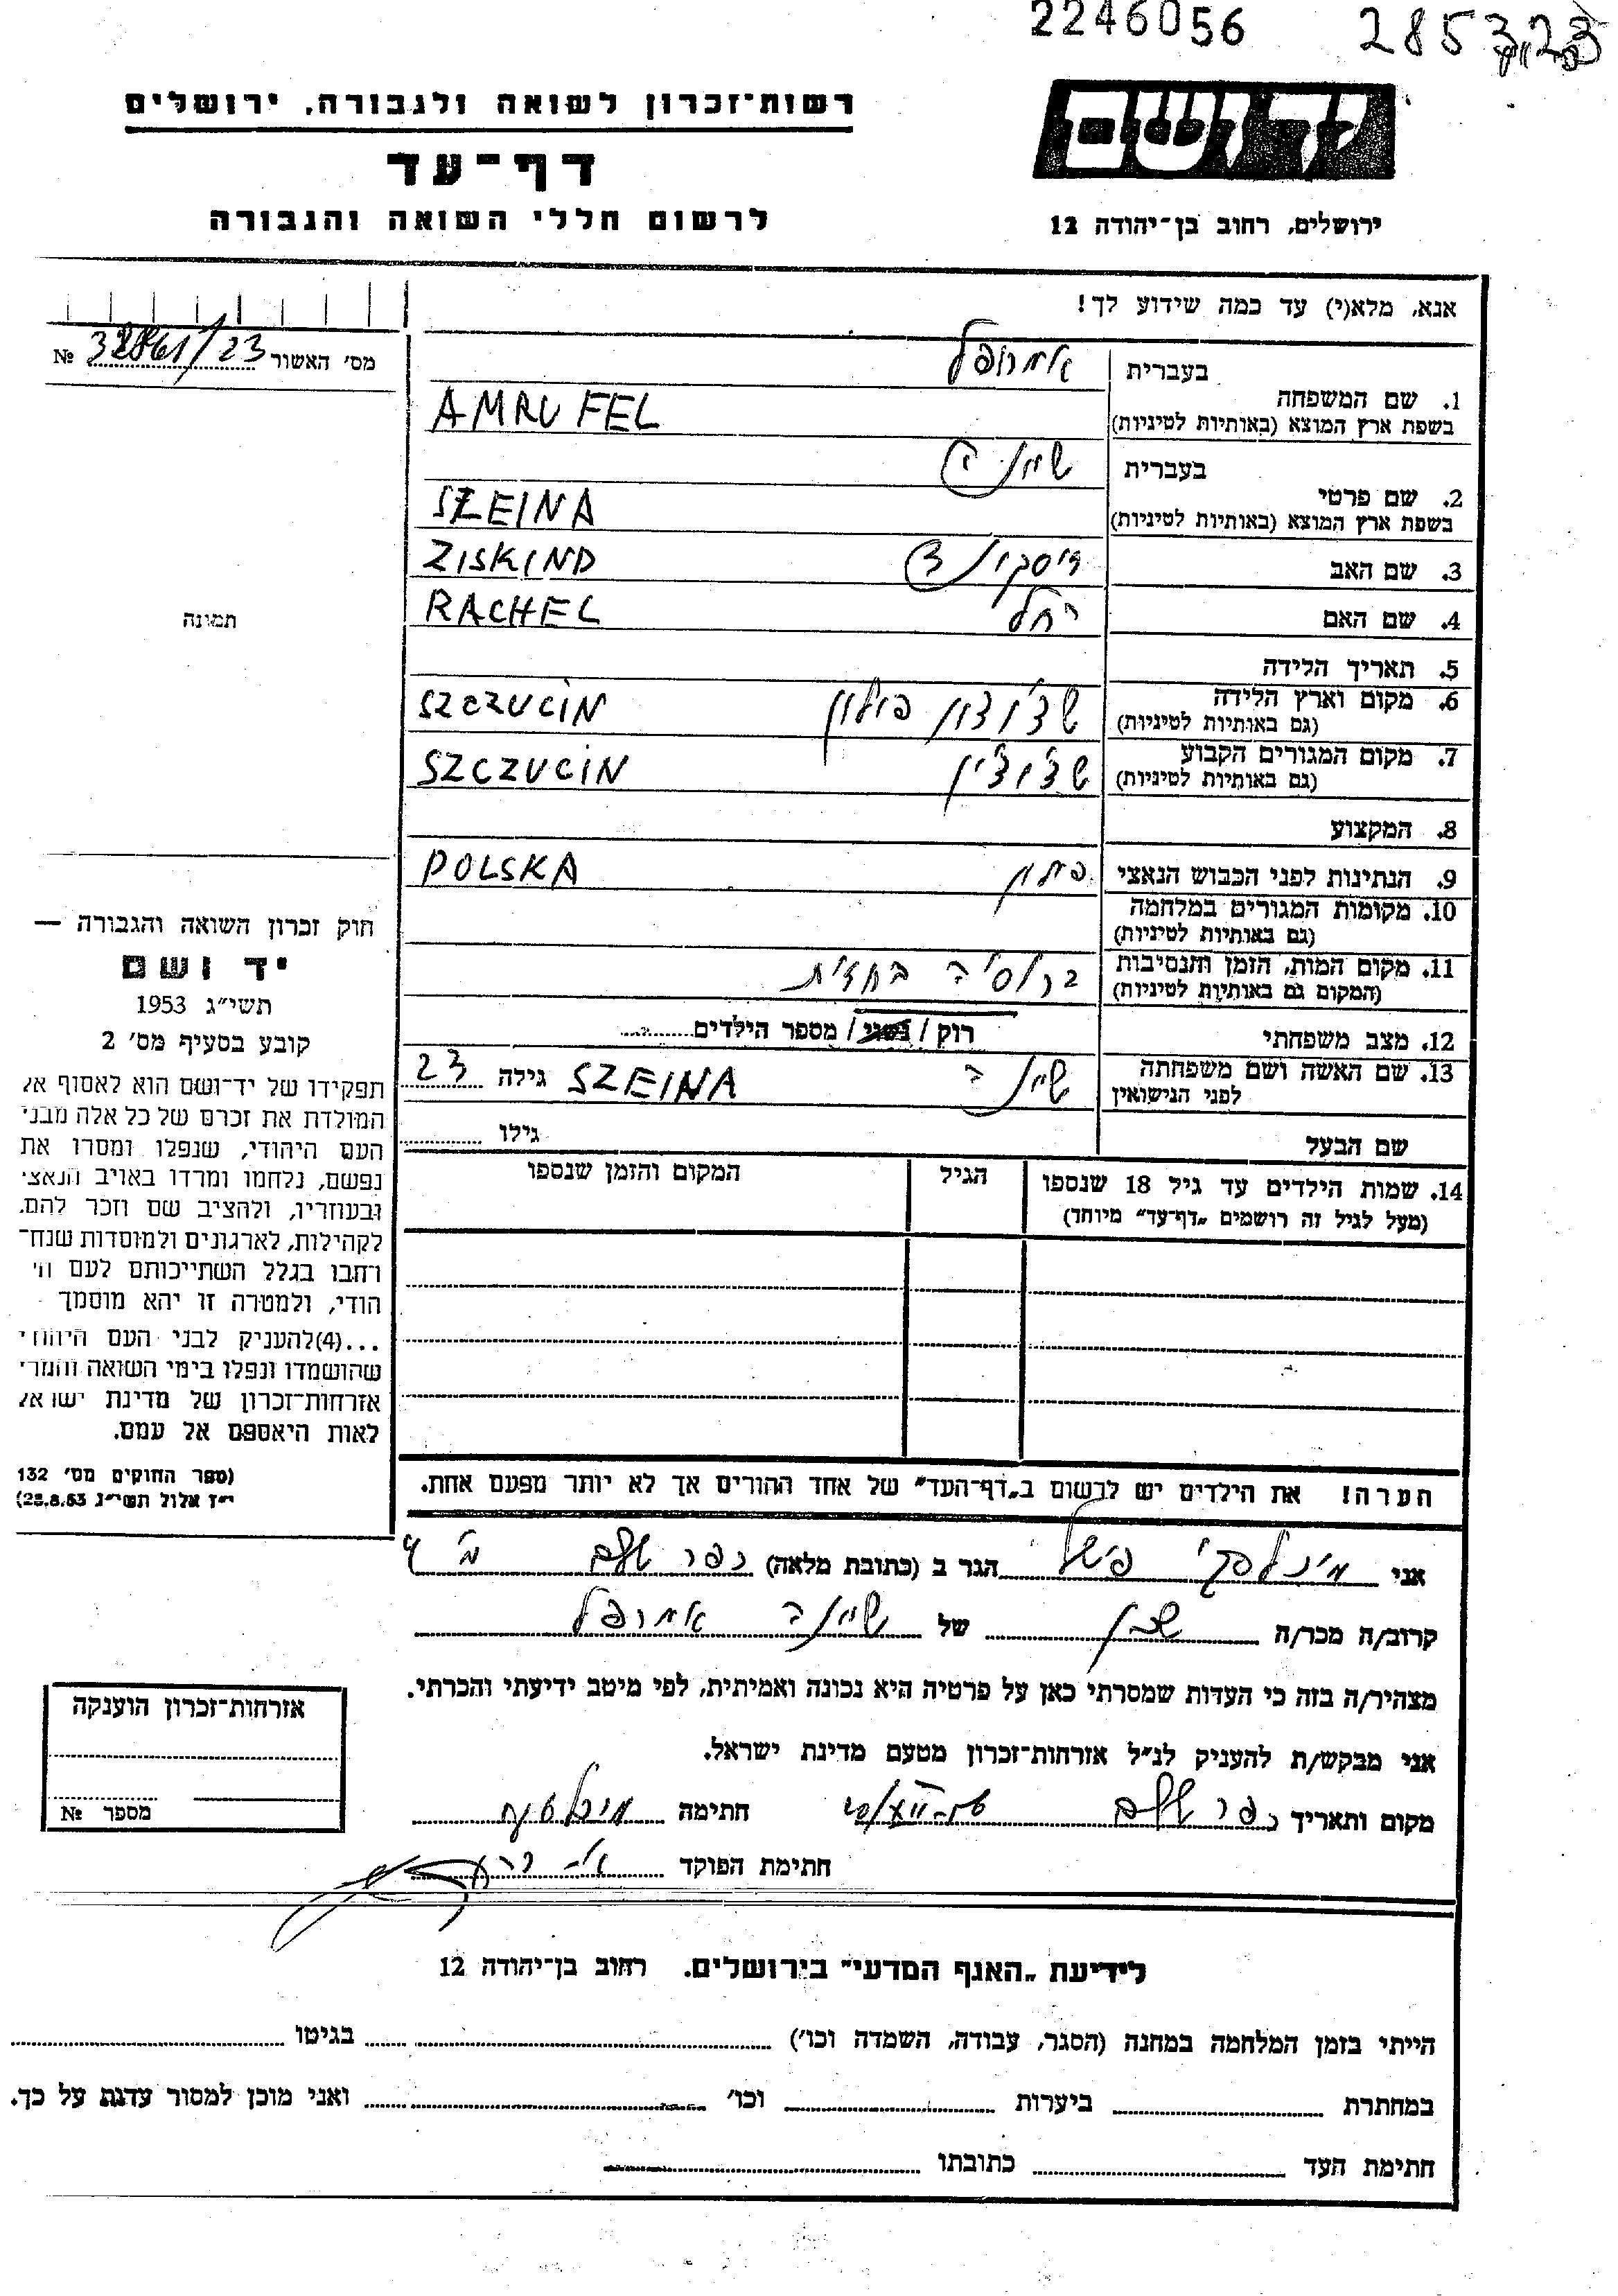 2246056 285323
רשות־זכרון לשואה ולגבורה, ירושלים
יד ושם
דף־עד
לרשום חללי השואה והגבורה
ירושלים, רחוב בן־יהודה 12
אנא, מלא(י) עד כמה שידוע לך!
מס׳ האשור 32861/23 №
בעברית אמרופל
1. שם המשפחה
בשפת ארץ המוצא (באותיות לטיניות) AMRUFEL
בעברית שיינה
2. שם פרטי
בשפת ארץ המוצא (באותיות לטיניות) SZEINA
3. שם האב זיסקינד ZISKIND
4. שם האם רחל RACHEL
תמונה
5. תאריך הלידה
6. מקום וארץ הלידה שצ׳וצין פולין SZCZUCIN
(גם באותיות לטיניות)
7. מקום המגורים הקבוע שצ׳וצ׳ין SZCZUCIN
(גם באותיות לטיניות)
8. המקצוע
9. הנתינות לפני הכבוש הנאצי פולין POLSKA
10. מקומות המגורים במלחמה
(גם באותיות לטיניות)
11. מקום המות, הזמן והנסיבות ברוסיה בחזית
(המקום גם באותיות לטיניות)
12. מצב משפחתי רוק / נשוי / מספר הילדים
13. שם האשה ושם משפחתה שיינה SZEINA גילה 23
לפני הנישואין
שם הבעל גילו
14. שמות הילדים עד גיל 18 שנספו הגיל המקום והזמן שנספו
(מעל לגיל זה רושמים „דף־עד” מיוחד)
חוק זכרון השואה והגבורה —
יד ושם
תשי״ג 1953
קובע בסעיף מס׳ 2
תפקידו של יד־ושם הוא לאסוף אל
המולדת את זכרם של כל אלה מבני
העם היהודי, שנפלו ומסרו את
נפשם, נלחמו ומרדו באויב הנאצי
ובעוזריו, ולהציב שם וזכר להם,
לקהילות, לארגונים ולמוסדות שנח־
רחבו בגלל השתייכותם לעם הי
הודי, ולמטרה זו יהא מוסמך
...(4)להעניק לבני העם היהודי
שהושמדו ונפלו בימי השואה והמרי
אזרחות־זכרון של מדינת ישראל
לאות היאספם אל עמם.
(ספר החוקים מס׳ 132
י״ז אלול תשי״ג 28.8.53)
הערה! את הילדים יש לרשום ב„דף־העד” של אחד ההורים אך לא יותר מפעם אחת.
אני פישל הגר ב (כתובת מלאה) כפר שלם
קרוב/ה מכר/ה שכן של שיינה אמרופל
מצהיר/ה בזה כי העדות שמסרתי כאן על פרטיה היא נכונה ואמיתית, לפי מיטב ידיעתי והכרתי.
אני מבקש/ת להעניק לנ״ל אזרחות־זכרון מטעם מדינת ישראל.
מקום ותאריך כפר שלם חתימה
חתימת הפוקד
אזרחות־זכרון הוענקה
מספר №
לידיעת „האגף המדעי” בירושלים. רחוב בן־יהודה 12
הייתי בזמן המלחמה במחנה (הסגר, עבודה, השמדה וכו׳) בגיטו
במחתרת ביערות וכו׳ ואני מוכן למסור עדות על כך.
חתימת העד כתובתו